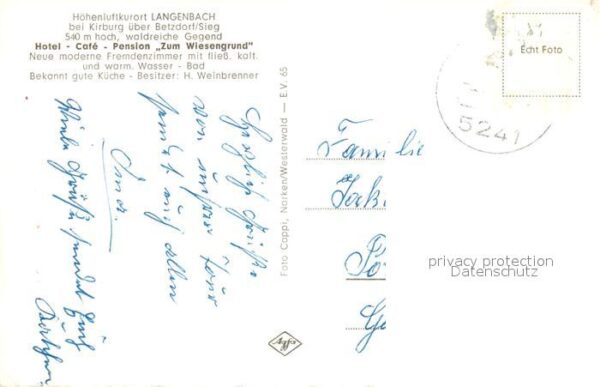 Höhenluftkurort LANGENBACH
bei Kirburg über Betzdorf/Sieg
540 m hoch, waldreiche Gegend
Hotel - Café - Pension „Zum Wiesengrund"
Neue moderne Fremdenzimmer mit fließ. kalt.
und warm. Wasser - Bad
Bekannt gute Küche - Besitzer: H. Weinbrenner
Herzlich Grüße
von unserer Tour
sendet euch allen
Oma.
Viele Grüße sendet Euch
Foto Cappi, Norken/Westerwald — E.V. 65
Echt Foto
5241
Familie
privacy protection
Datenschutz